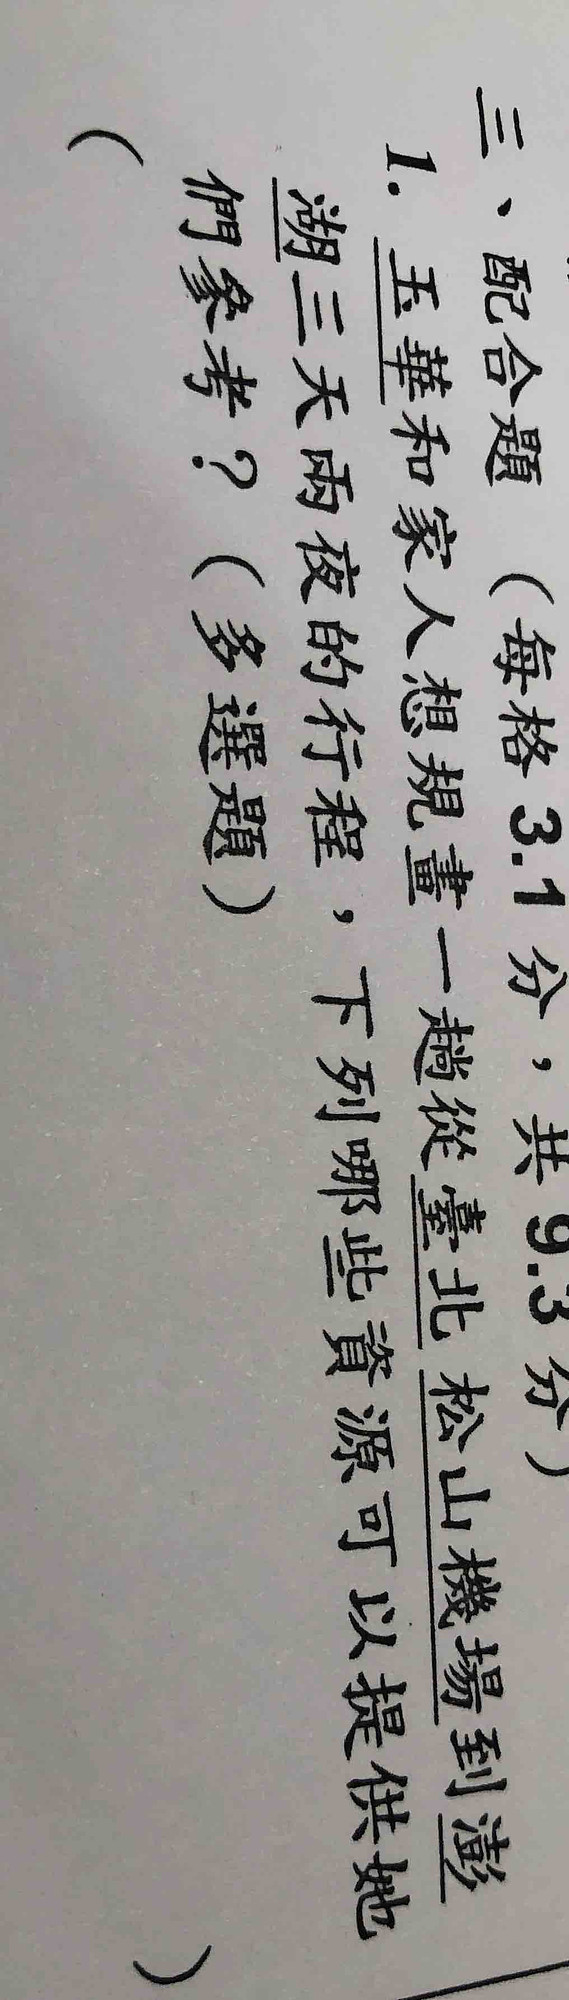 三、配合題（每格3.1分，共9.3分）
1. 玉華和家人想規畫一趟從臺北松山機場到澎
湖三天兩夜的行程，下列哪些資源可以提供她
們參考？（多選題）
（ ）